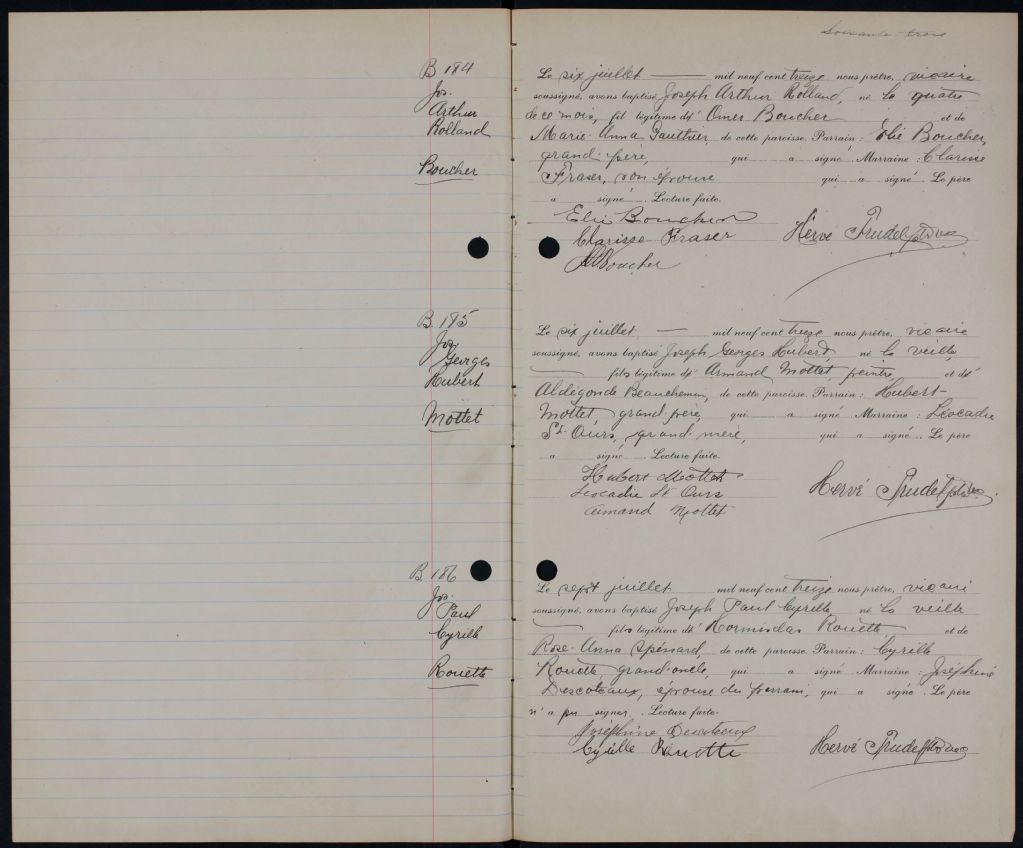 Soixante-trois
B 184
Jos.
Arthur
Rolland
Boucher
Le six juillet mil neuf cent treize nous prêtre, vicaire
soussigné, avons baptisé Joseph Arthur Rolland, né le quatre
de ce mois, fils légitime d' Omer Boucher et de
Marie-Anna Gauthier, de cette paroisse. Parrain: Elie Boucher,
grand-père, qui a signé. Marraine: Clarisse
Fraser, son épouse qui a signé. Le père
a signé. Lecture faite.
Elie Boucher
Clarisse Fraser Hervé Trudel ptre vic
Boucher
B. 185
Jos.
Georges
Hubert
Mottet
Le six juillet mil neuf cent treize nous prêtre, vicaire
soussigné, avons baptisé Joseph Georges Hubert, né la veille,
fils légitime d' Armand Mottet, peintre, et d'
Aldégonde Beauchemin, de cette paroisse. Parrain: Hubert
Mottet grand-père, qui a signé. Marraine: Léocadie
St-Ours, grand-mère, qui a signé. Le père
a signé. Lecture faite.
Hubert Mottet
Léocadie St Ours Hervé Trudel ptre vic.
Armand Mottet
B. 186
Jos.
Paul
Cyrille
Rouette
Le sept juillet mil neuf cent treize nous prêtre, vicaire
soussigné, avons baptisé Joseph Paul Cyrille né la veille
fils légitime d' Hormisdas Rouette et de
Rose-Anna Spénard de cette paroisse. Parrain: Cyrille
Rouette, grand-oncle, qui a signé. Marraine: Joséphine
Descoteaux, épouse du parrain, qui a signé. Le père
n'a pu signer. Lecture faite.
Joséphine Descoteaux
Cyrille Rouette Hervé Trudel ptre vic